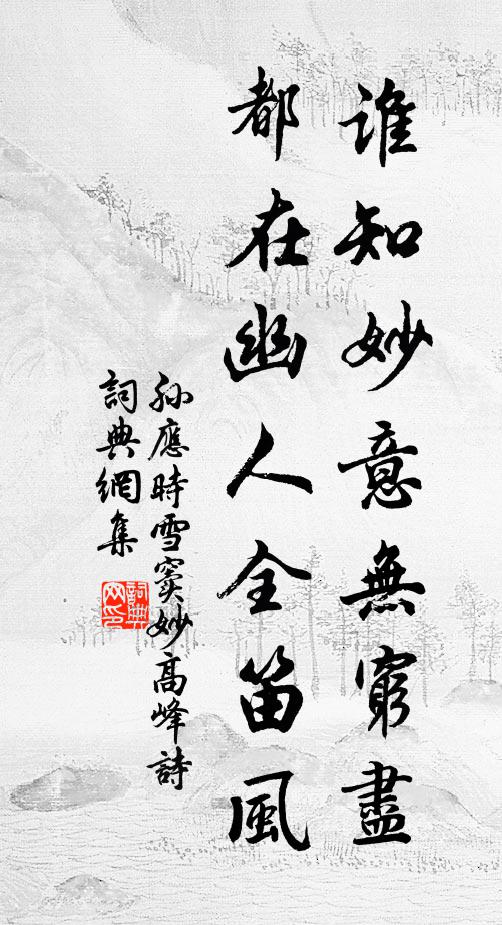 誰知妙意無窮盡
都在幽人全笛風
孫應時雪窦妙高峰詩
詞典網集
詞典
网印